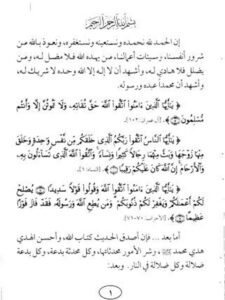 بسم الله الرحمن الرحيم
إن الحمد لله نحمده ونستعينه ونستغفره، ونعوذ بالله من
شرور أنفسنا، وسيئات أعمالنا، من يهده الله فلا مضل له، ومن
يضلل فلا هادي له، وأشهد أن لا إله إلا الله وحده لا شريك له،
وأشهد أن محمداً عبده ورسوله.
﴿ يَٰٓأَيُّهَا ٱلَّذِينَ ءَامَنُوا۟ ٱتَّقُوا۟ ٱللَّهَ حَقَّ تُقَاتِهِۦ وَلَا تَمُوتُنَّ إِلَّا وَأَنتُم
مُّسْلِمُونَ ﴾ [آل عمران: ١٠٢].
﴿ يَٰٓأَيُّهَا ٱلنَّاسُ ٱتَّقُوا۟ رَبَّكُمُ ٱلَّذِى خَلَقَكُم مِّن نَّفْسٍ وَٰحِدَةٍ وَخَلَقَ
مِنْهَا زَوْجَهَا وَبَثَّ مِنْهُمَا رِجَالًا كَثِيرًا وَنِسَآءً ۚ وَٱتَّقُوا۟ ٱللَّهَ ٱلَّذِى تَسَآءَلُونَ بِهِۦ
وَٱلْأَرْحَامَ ۚ إِنَّ ٱللَّهَ كَانَ عَلَيْكُمْ رَقِيبًا ﴾ [النساء: ١].
﴿ يَٰٓأَيُّهَا ٱلَّذِينَ ءَامَنُوا۟ ٱتَّقُوا۟ ٱللَّهَ وَقُولُوا۟ قَوْلًا سَدِيدًا ۝ يُصْلِحْ
لَكُمْ أَعْمَٰلَكُمْ وَيَغْفِرْ لَكُمْ ذُنُوبَكُمْ ۗ وَمَن يُطِعِ ٱللَّهَ وَرَسُولَهُۥ فَقَدْ فَازَ فَوْزًا
عَظِيمًا ﴾ [الأحزاب: ٧٠-٧١].
أما بعد ... فإن أصدق الحديث كتاب الله، وأحسن الهدي
هدي محمد ﷺ، وشر الأمور محدثاتها، وكل محدثة بدعة، وكل بدعة
ضلالة وكل ضلالة في النار. وبعد:
١